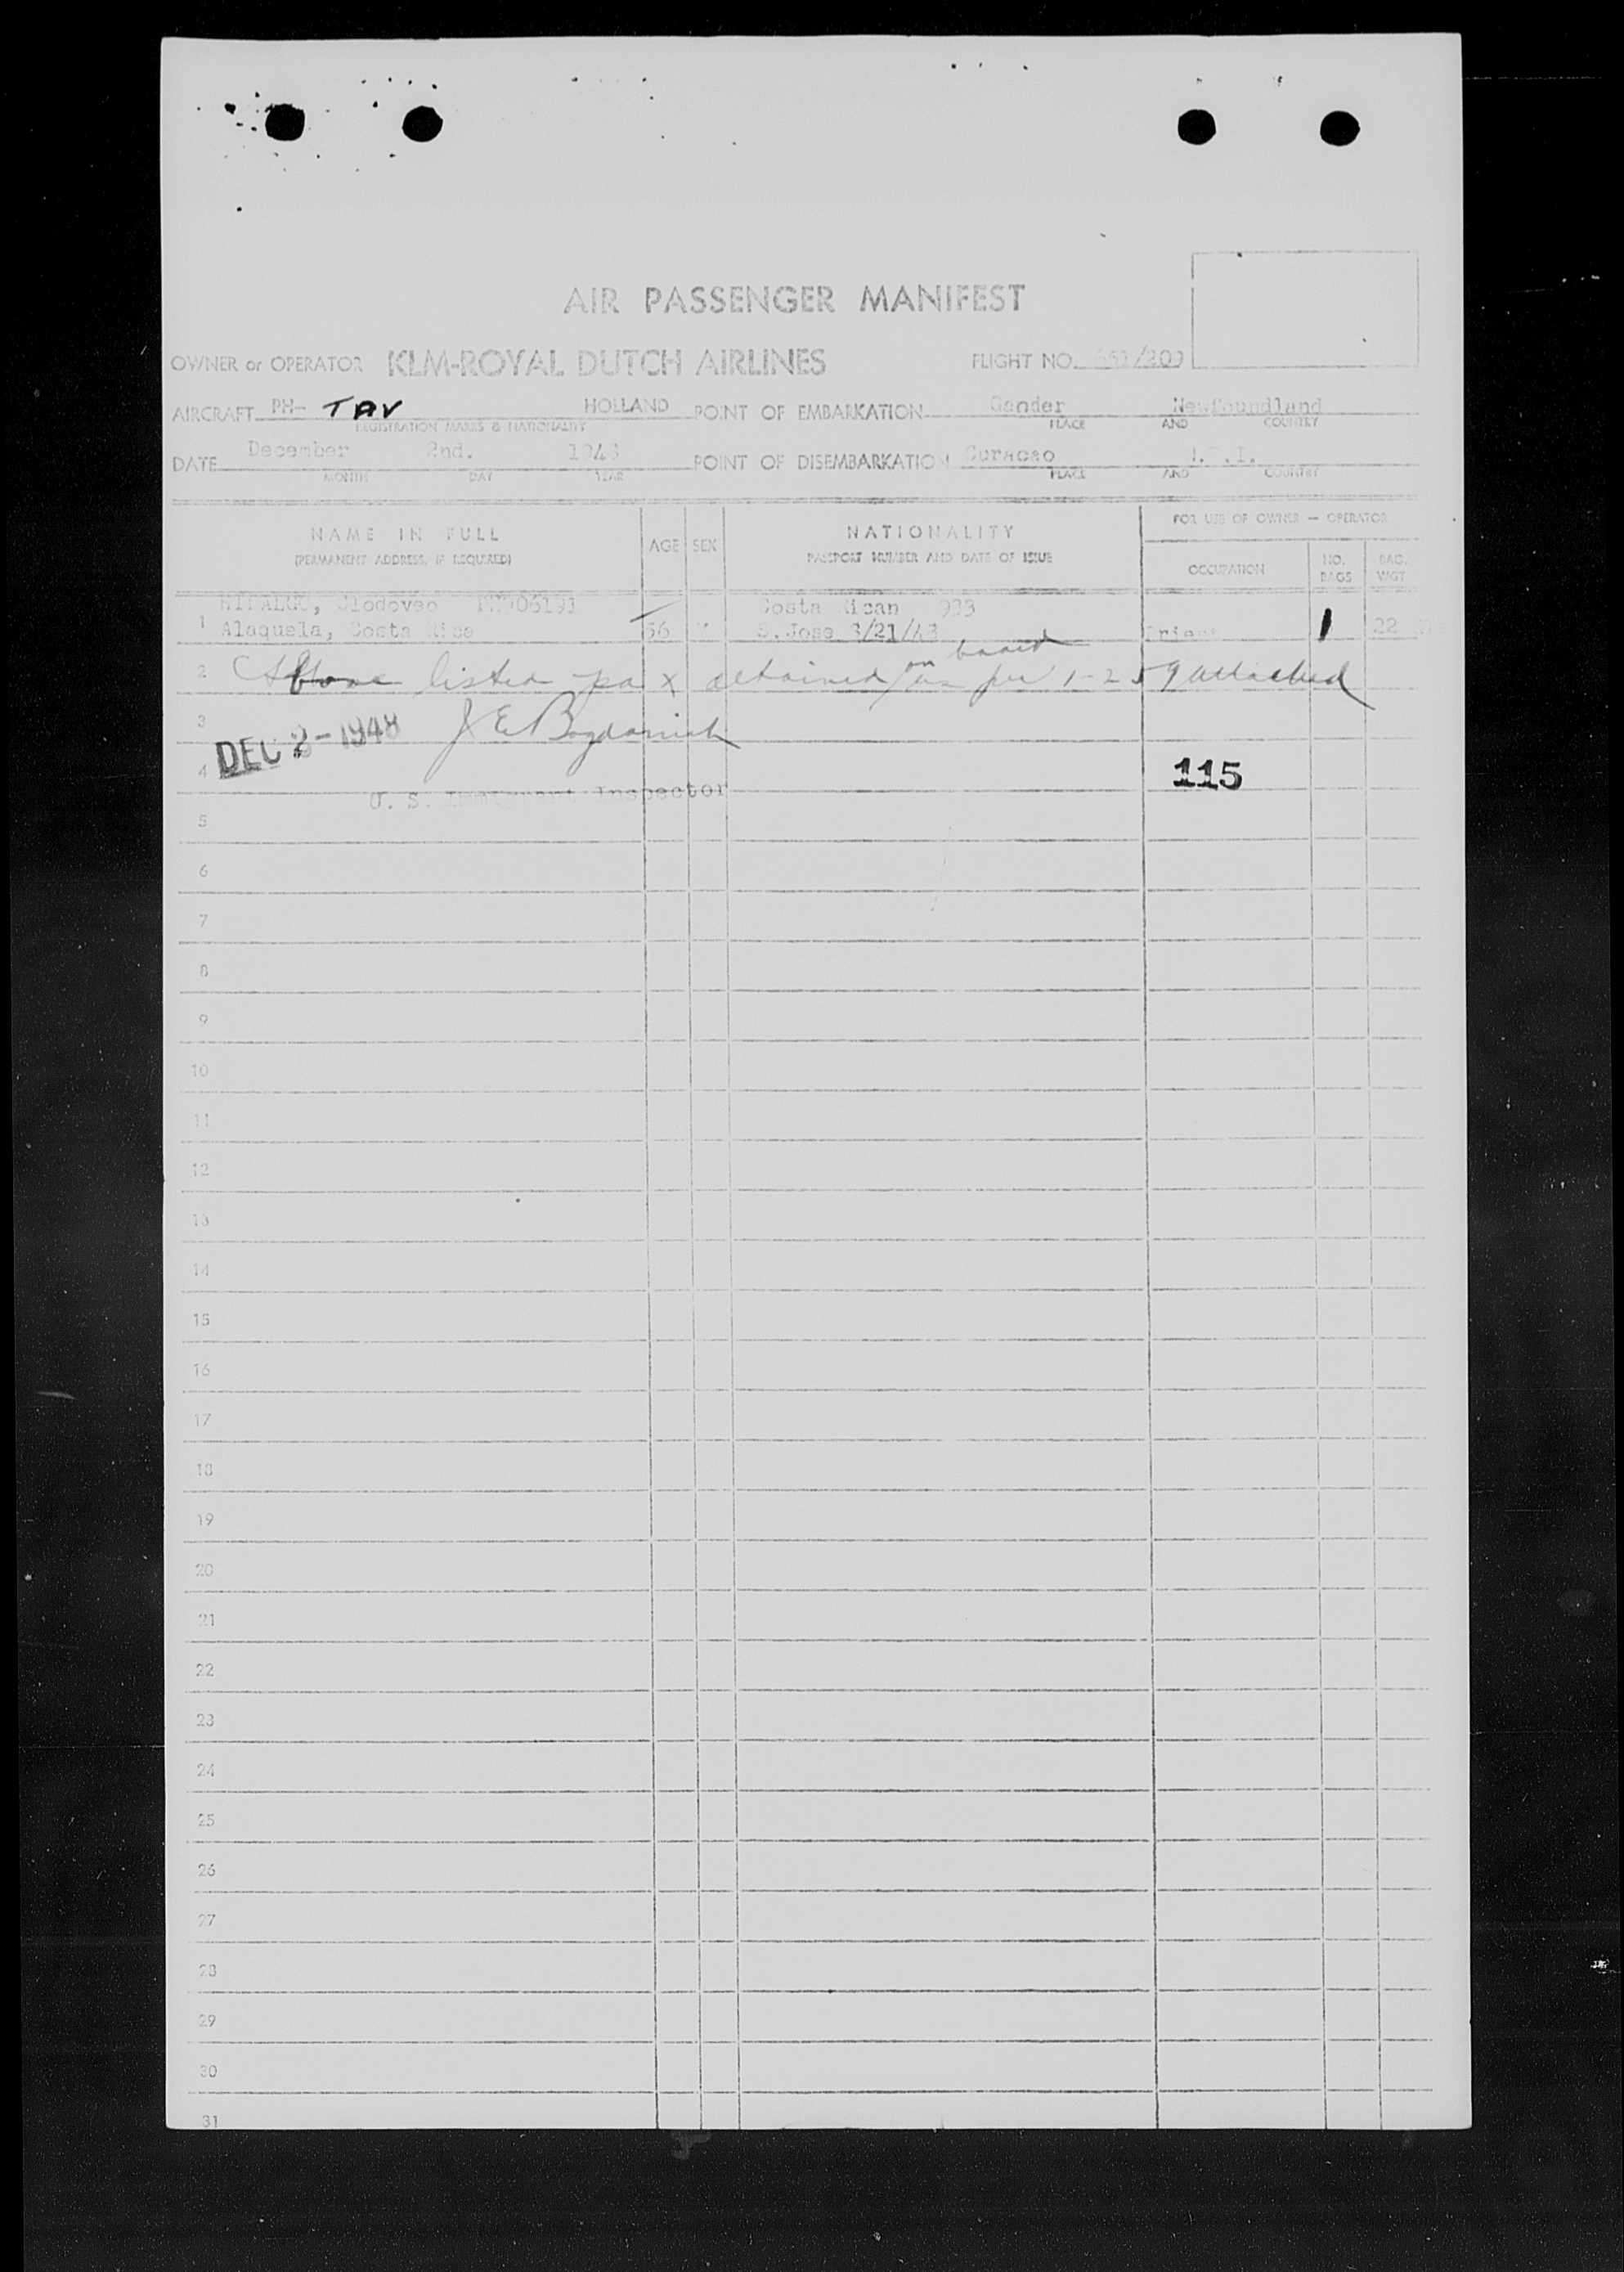 AIR PASSENGER MANIFEST
OWNER or OPERATOR KLM-ROYAL DUTCH AIRLINES FLIGHT NO. /209
AIRCRAFT PH- TAV HOLLAND POINT OF EMBARKATION Gander Newfoundland
REGISTRATION MARKS & NATIONALITY PLACE AND COUNTRY
DATE December 2nd. 1948 POINT OF DISEMBARKATION Curacao
MONTH DAY YEAR PLACE AND COUNTRY
NAME IN FULL AGE SEX NATIONALITY FOR USE OF OWNER — OPERATOR
(PERMANENT ADDRESS, IF REQUIRED) PASSPORT NUMBER AND DATE OF ISSUE OCCUPATION NO. BAGS BAG. WGT
HIDALGO, Clodoveo Costa Rican 933
1 Alaquela, Costa Rica 56 S. Jose Priest 1 22
2 Above listed pax detained on board as per 1-259 attached
3 J E Bogdanich
4 DEC 2-1948 115
U. S. Immigrant Inspector
5
6
7
8
9
10
11
12
13
14
15
16
17
18
19
20
21
22
23
24
25
26
27
28
29
30
31